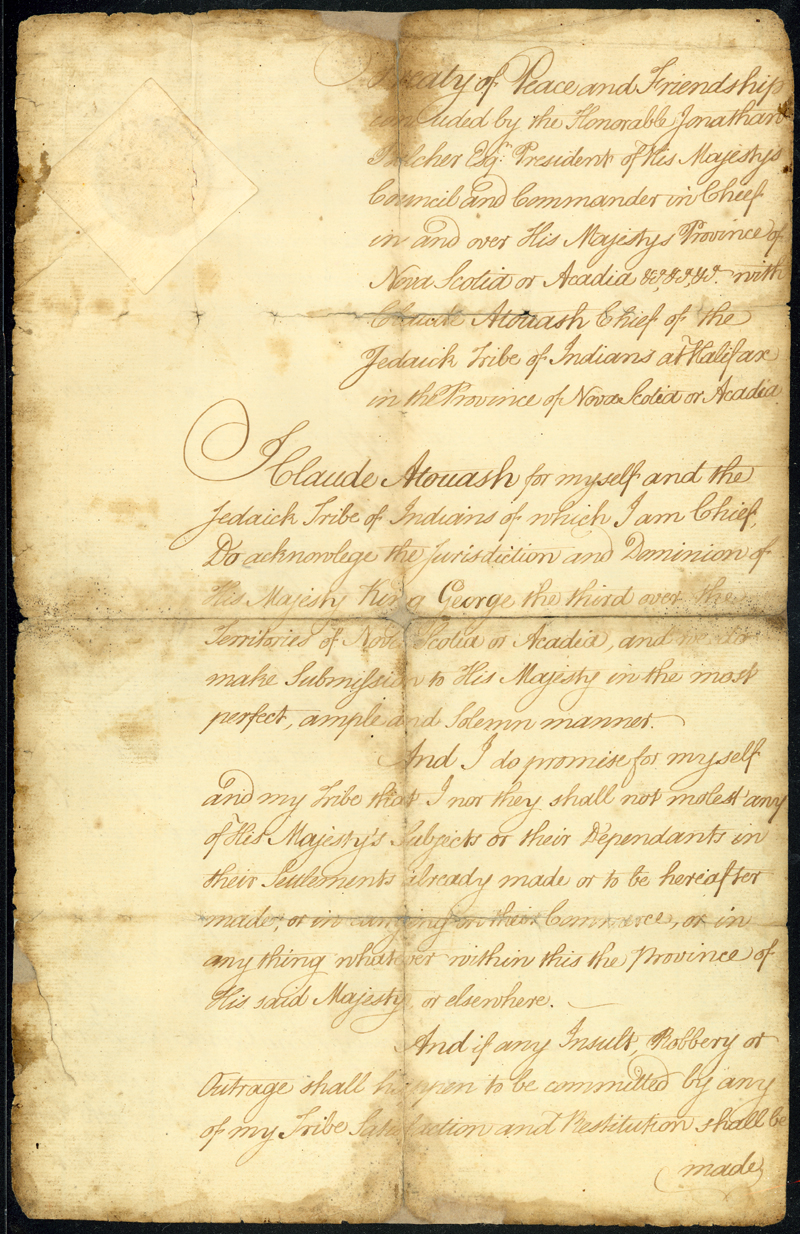 Treaty of Peace and Friendship
concluded by the Honorable Jonathan
Belcher Esqr. President of His Majestys
Council and Commander in Chief
in and over His Majestys Province of
Nova Scotia or Acadia &c, &c, &c. with
Claude Atouash Chief of the
Jedaick Tribe of Indians at Halifax
in the Province of Nova Scotia or Acadia
I Claude Atouash for myself and the
Jedaick Tribe of Indians of which I am Chief,
Do acknowlege the Jurisdiction and Dominion of
His Majesty King George the third over the
Territories of Nova Scotia or Acadia, and we do
make Submission to His Majesty in the most
perfect, ample and Solemn manner.
And I do promise for myself
and my Tribe that I nor they shall not molest any
of His Majesty's Subjects or their Dependants in
their Setlements already made or to be hereafter
made, or in carrying on their Commerce, or in
any thing whatever within this the Province of
His said Majesty or elsewhere.
And if any Insult, Robbery or
Outrage shall happen to be committed by any
of my Tribe Satisfaction and Restitution shall be
made